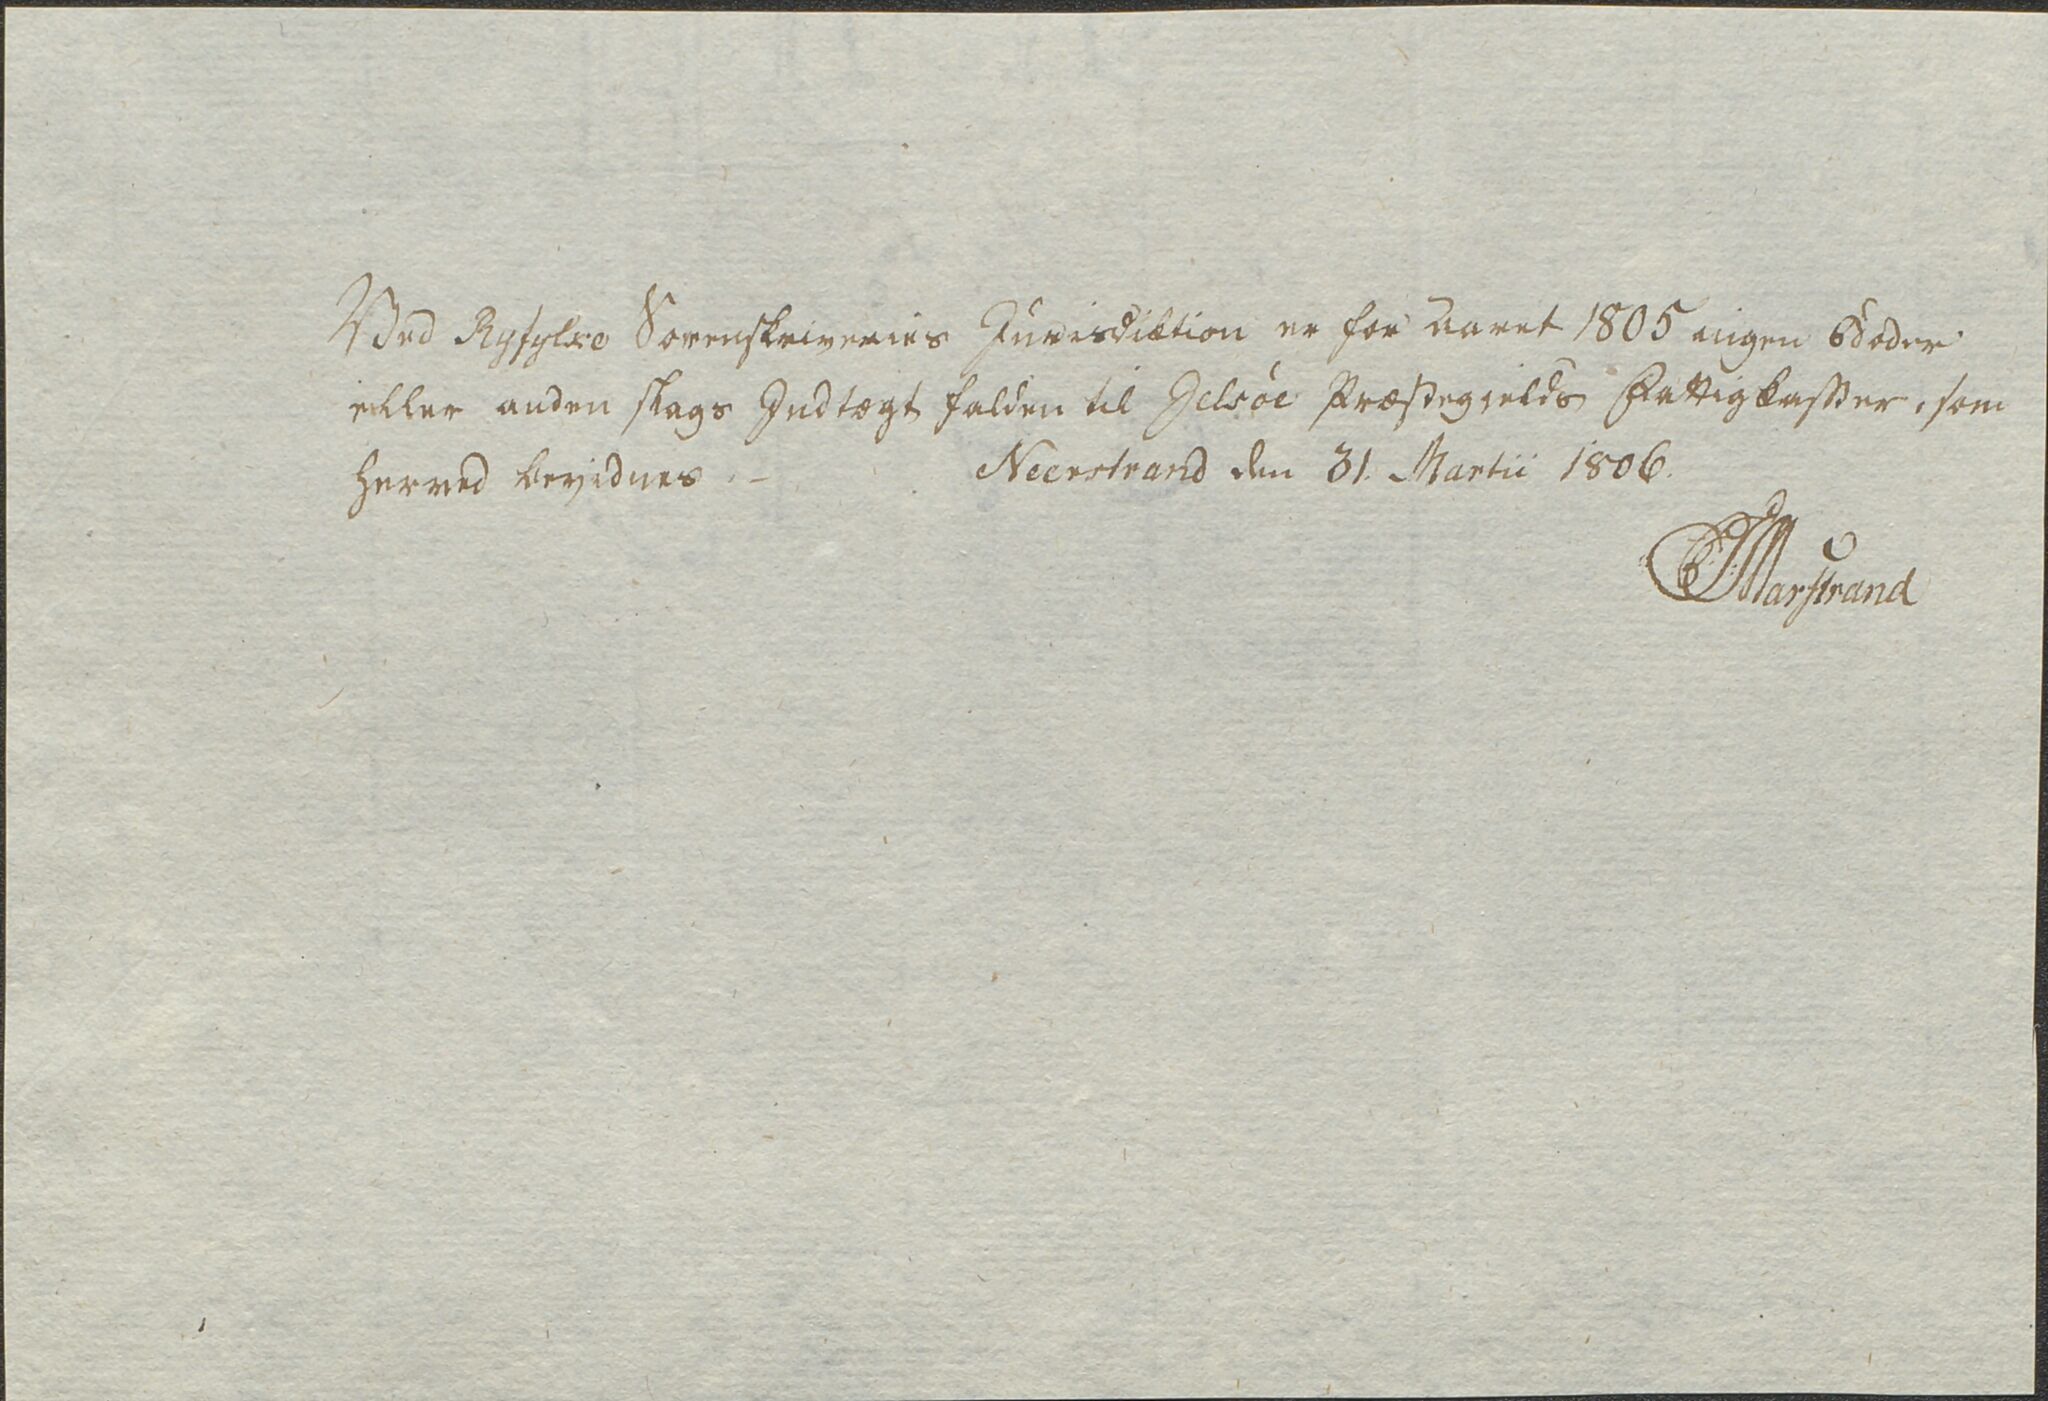 Ved Ryfylke Sorenskriveries Jurisdiktion er for Aaret 1805 ingen Bøder
eller anden slags Indtægt falden til Jelsøe Præstegields Fattigkasser, som
herved bevidnes. – Neerstrand den 31. Martii 1806.
Marstrand